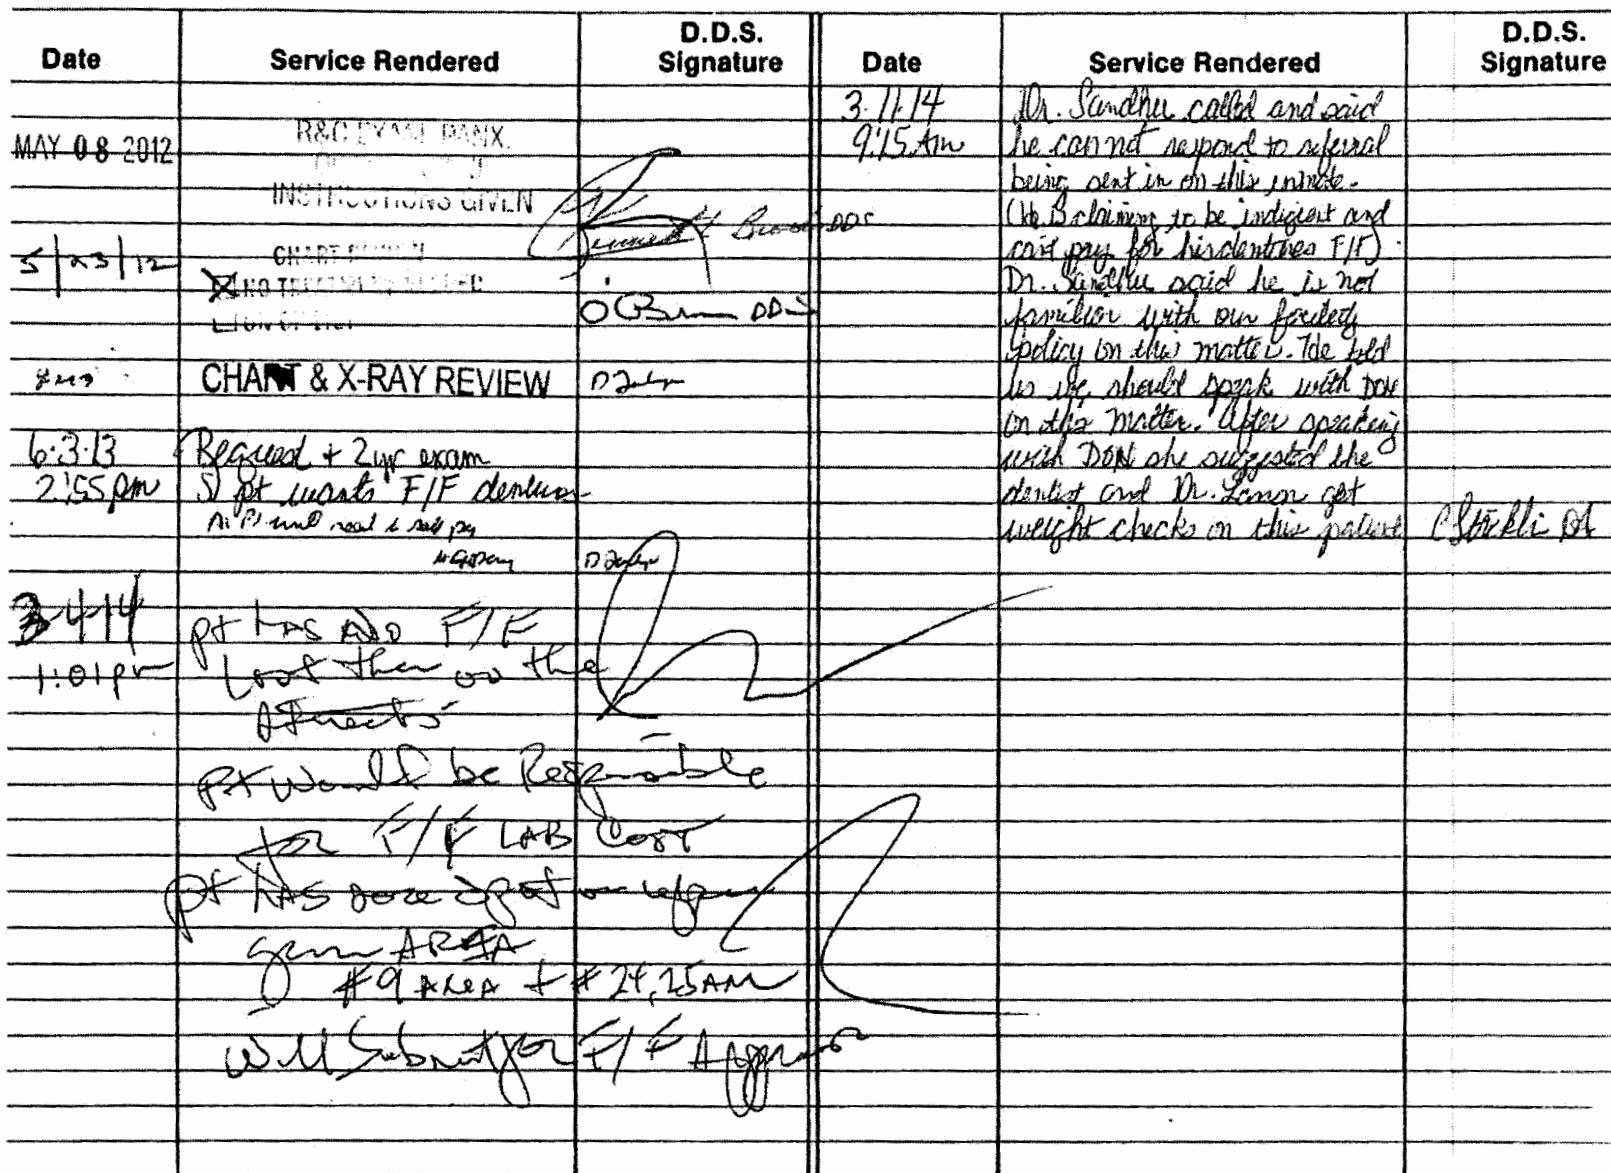 Date
Service Rendered
D.D.S.
Signature
MAY 08 2012
R&C EXAM, PANX,
INSTRUCTIONS GIVEN
DDS
5/23/12
CHART REVIEW
NO TREATMENT NEEDED
O'Brien DDS
CHART & X-RAY REVIEW
6.3.13
Request + 2yr exam
2:55 pm
S) pt wants F/F dentures
A: Pt will need to self pay
3-4-14
pt HAS NO F/F
1:01 pm
Lost them on the
streets
pt Would be Responsible
for F/F LAB Cost
pt HAS sore spot on upper
gum AREA
#9 AREA + # 24, 25 AREA
Will Submit for F/F Approval
Date
Service Rendered
D.D.S.
Signature
3.11.14
Dr. Sandhu called and said
9:15 Am
he cannot respond to referral
being sent in on this inmate.
(He is claiming to be indigient and
cant pay for his dentures F/F).
Dr. Sandhu said he is not
familiar with our facility
policy on this matter. He told
us we should speak with DON
on this matter. After speaking
with DON she suggested the
dentist and Dr. get
weight checks on this patient
DA